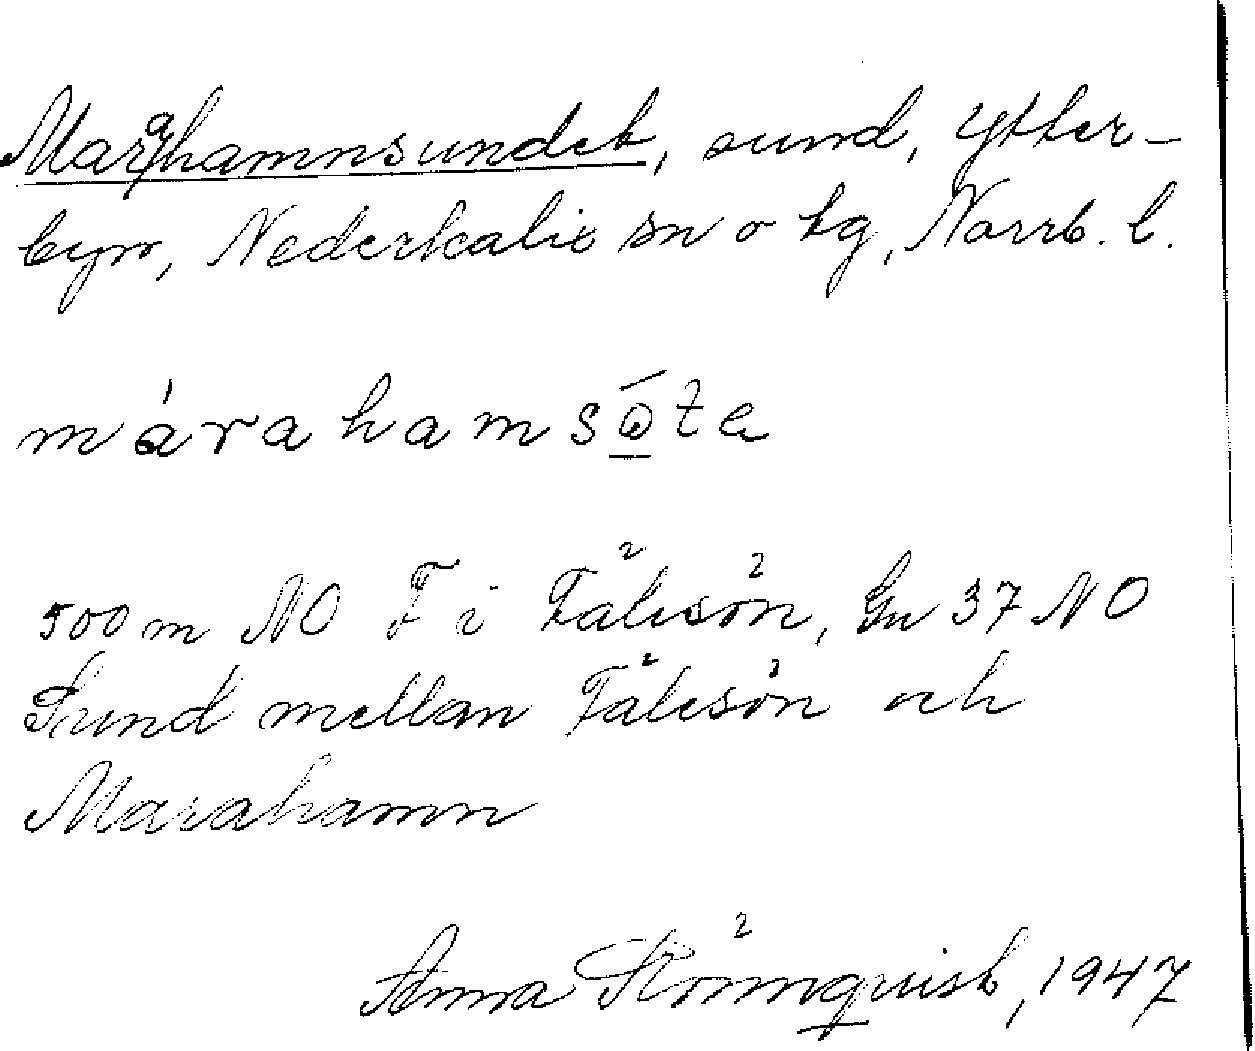 Marahamnsundet, sund, Ytter-
byn, Nederkalix sn o tg, Norrb. l.
márahamsǿ̱ta
500 m NO F i Fälesön, Gu 37 NO
Sund mellan Fälesön och
Marahamn
Anna Strömquist, 1947